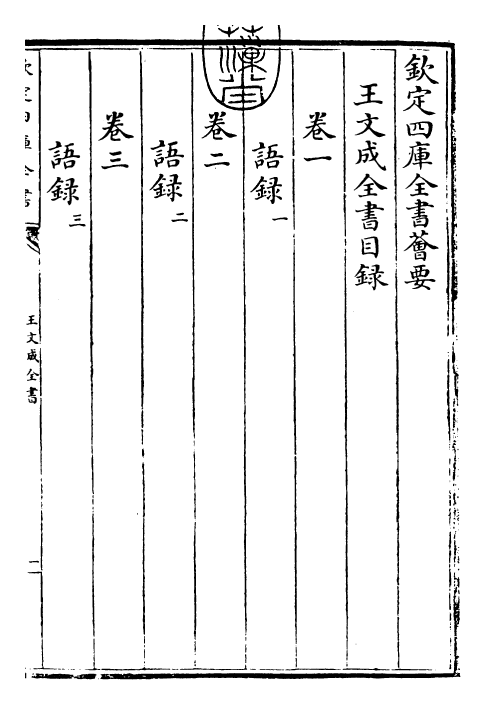 欽定四庫全書薈要
王文成全書目録
卷一
語録一
卷二
語録二
卷三
語録三
欽定四庫全書
王文成全書
二